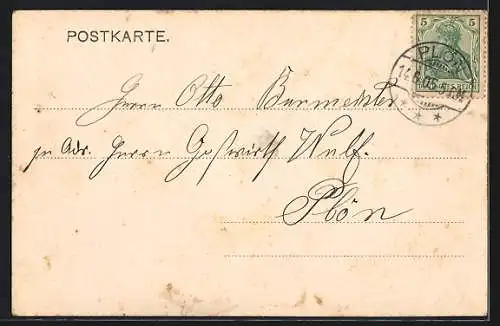 POSTKARTE.
5 5
PLÖN
14.8.05
Herrn Otto Burmeister
Adr. Herrn Gastwirth Wulf.
Plön